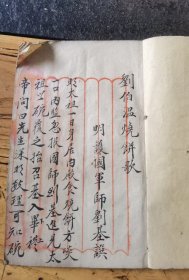 劉伯温燒餅歌
明護國軍師劉基譔
明太祖一日身居内殿食燒餅方啖
一口内監忽報國師劉基進見太
祖以碗覆之始召基入畢禮
帝問曰先生深明数理可知碗